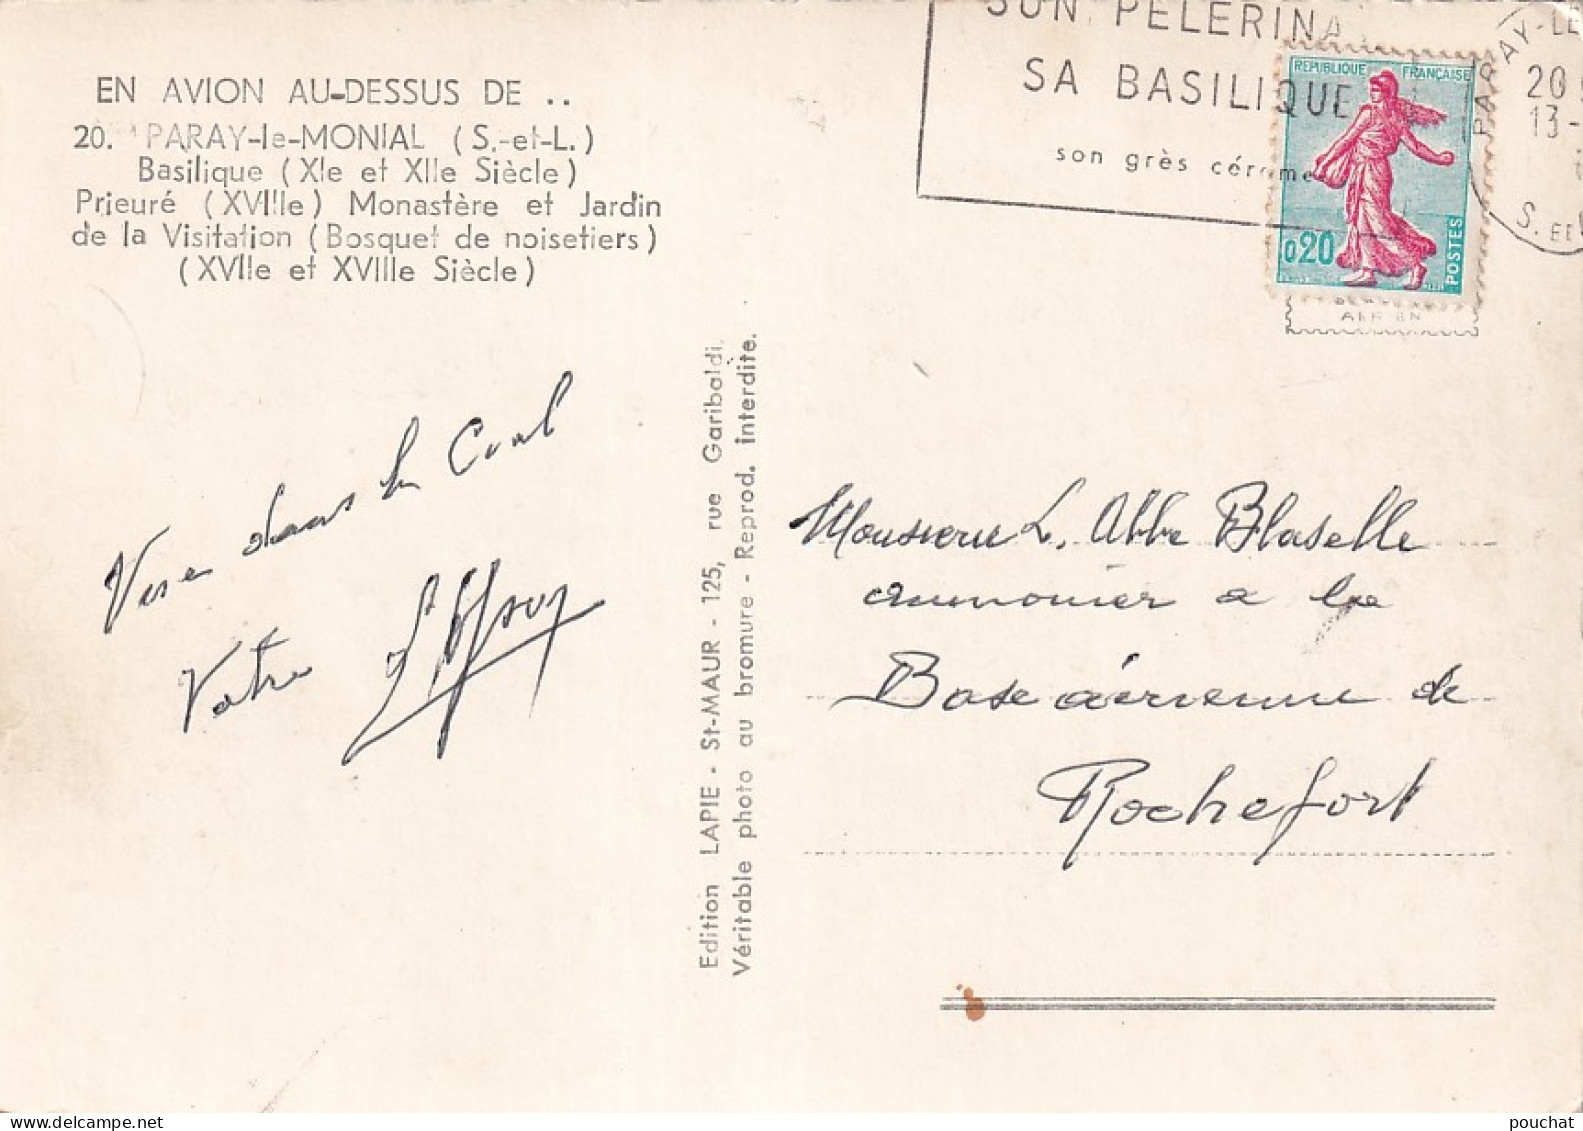 EN AVION AU-DESSUS DE ..
20. PARAY-le-MONIAL (S.-et-L.)
Basilique (XIe et XIIe Siècle)
Prieuré (XVIIIe) Monastère et Jardin
de la Visitation (Bosquet de noisetiers)
(XVIIe et XVIIIe Siècle)
SON PELERINA
SA BASILIQUE
son grès cérame
PARAY-LE
20
13-
S. ET L
REPUBLIQUE FRANÇAISE
0,20
POSTES
dans le
Votre
Edition LAPIE - St-MAUR - 125, rue Garibaldi.
Véritable photo au bromure - Reprod. interdite.
Monsieur L. Abbe Blaselle
aumonier a la
Base aérienne de
Rochefort
www.delcampe.net
pouchat